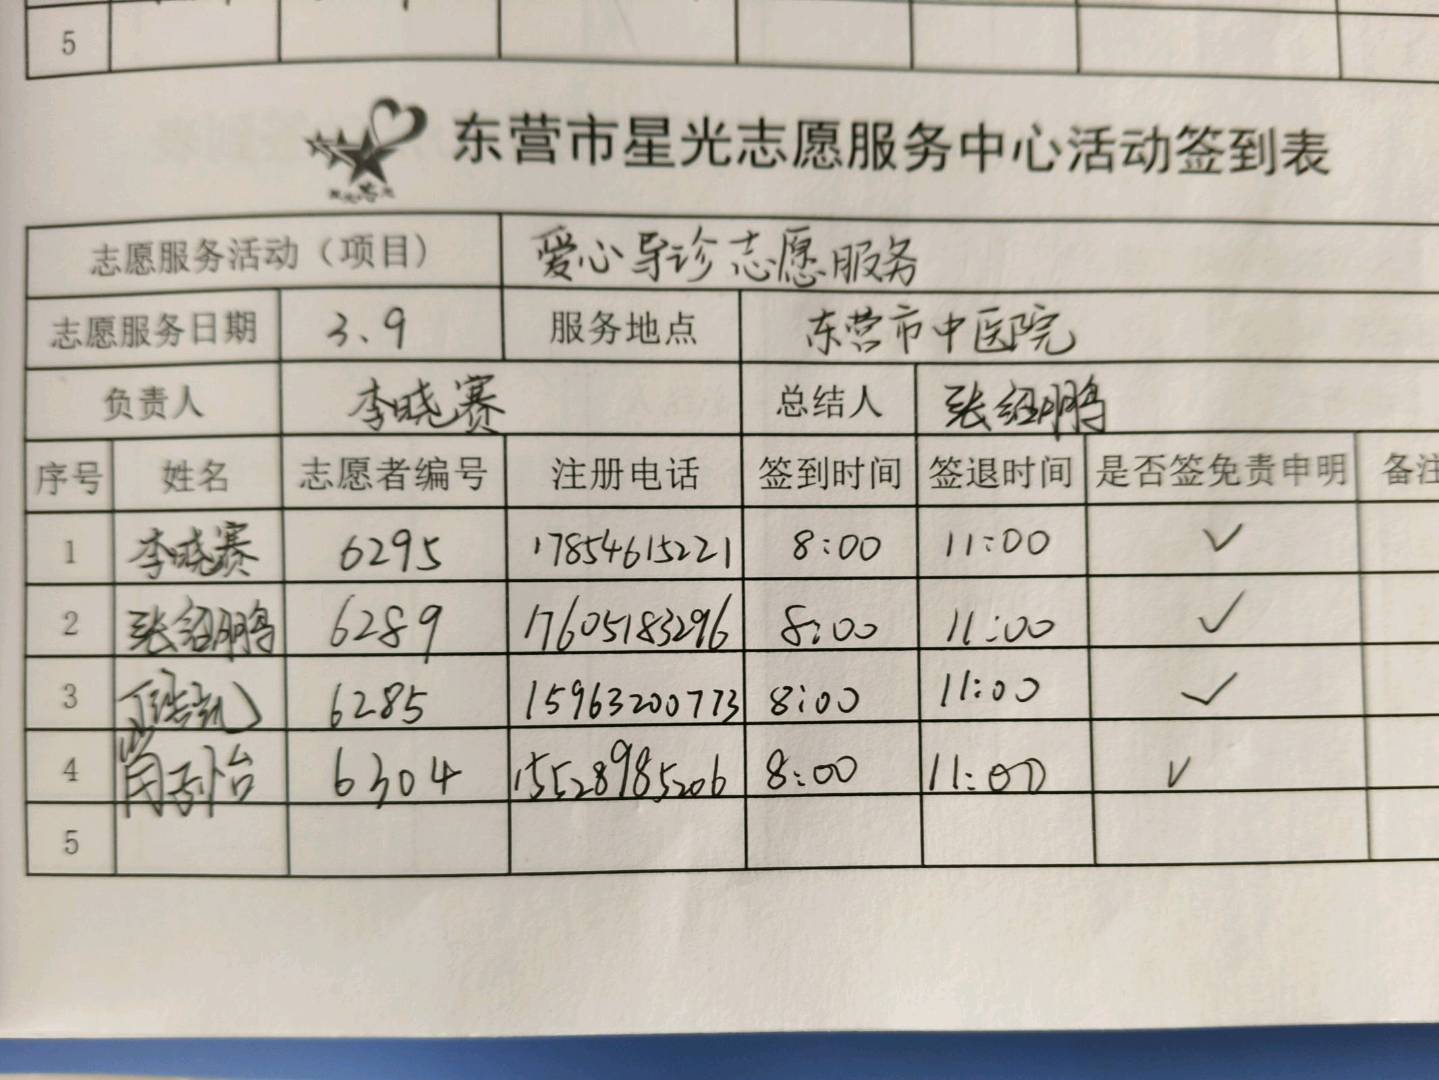 5
东营市星光志愿服务中心活动签到表
志愿服务活动（项目） 爱心导诊志愿服务
志愿服务日期 3.9 服务地点 东营市中医院
负责人 李晓赛 总结人 张绍鹏
序号 姓名 志愿者编号 注册电话 签到时间 签退时间 是否签免责申明 备注
1 李晓赛 6295 17854615221 8:00 11:00 ✓
2 张绍鹏 6289 17605183296 8:00 11:00 ✓
3 6285 15963200773 8:00 11:00 ✓
4 6304 15528985206 8:00 11:00 ✓
5